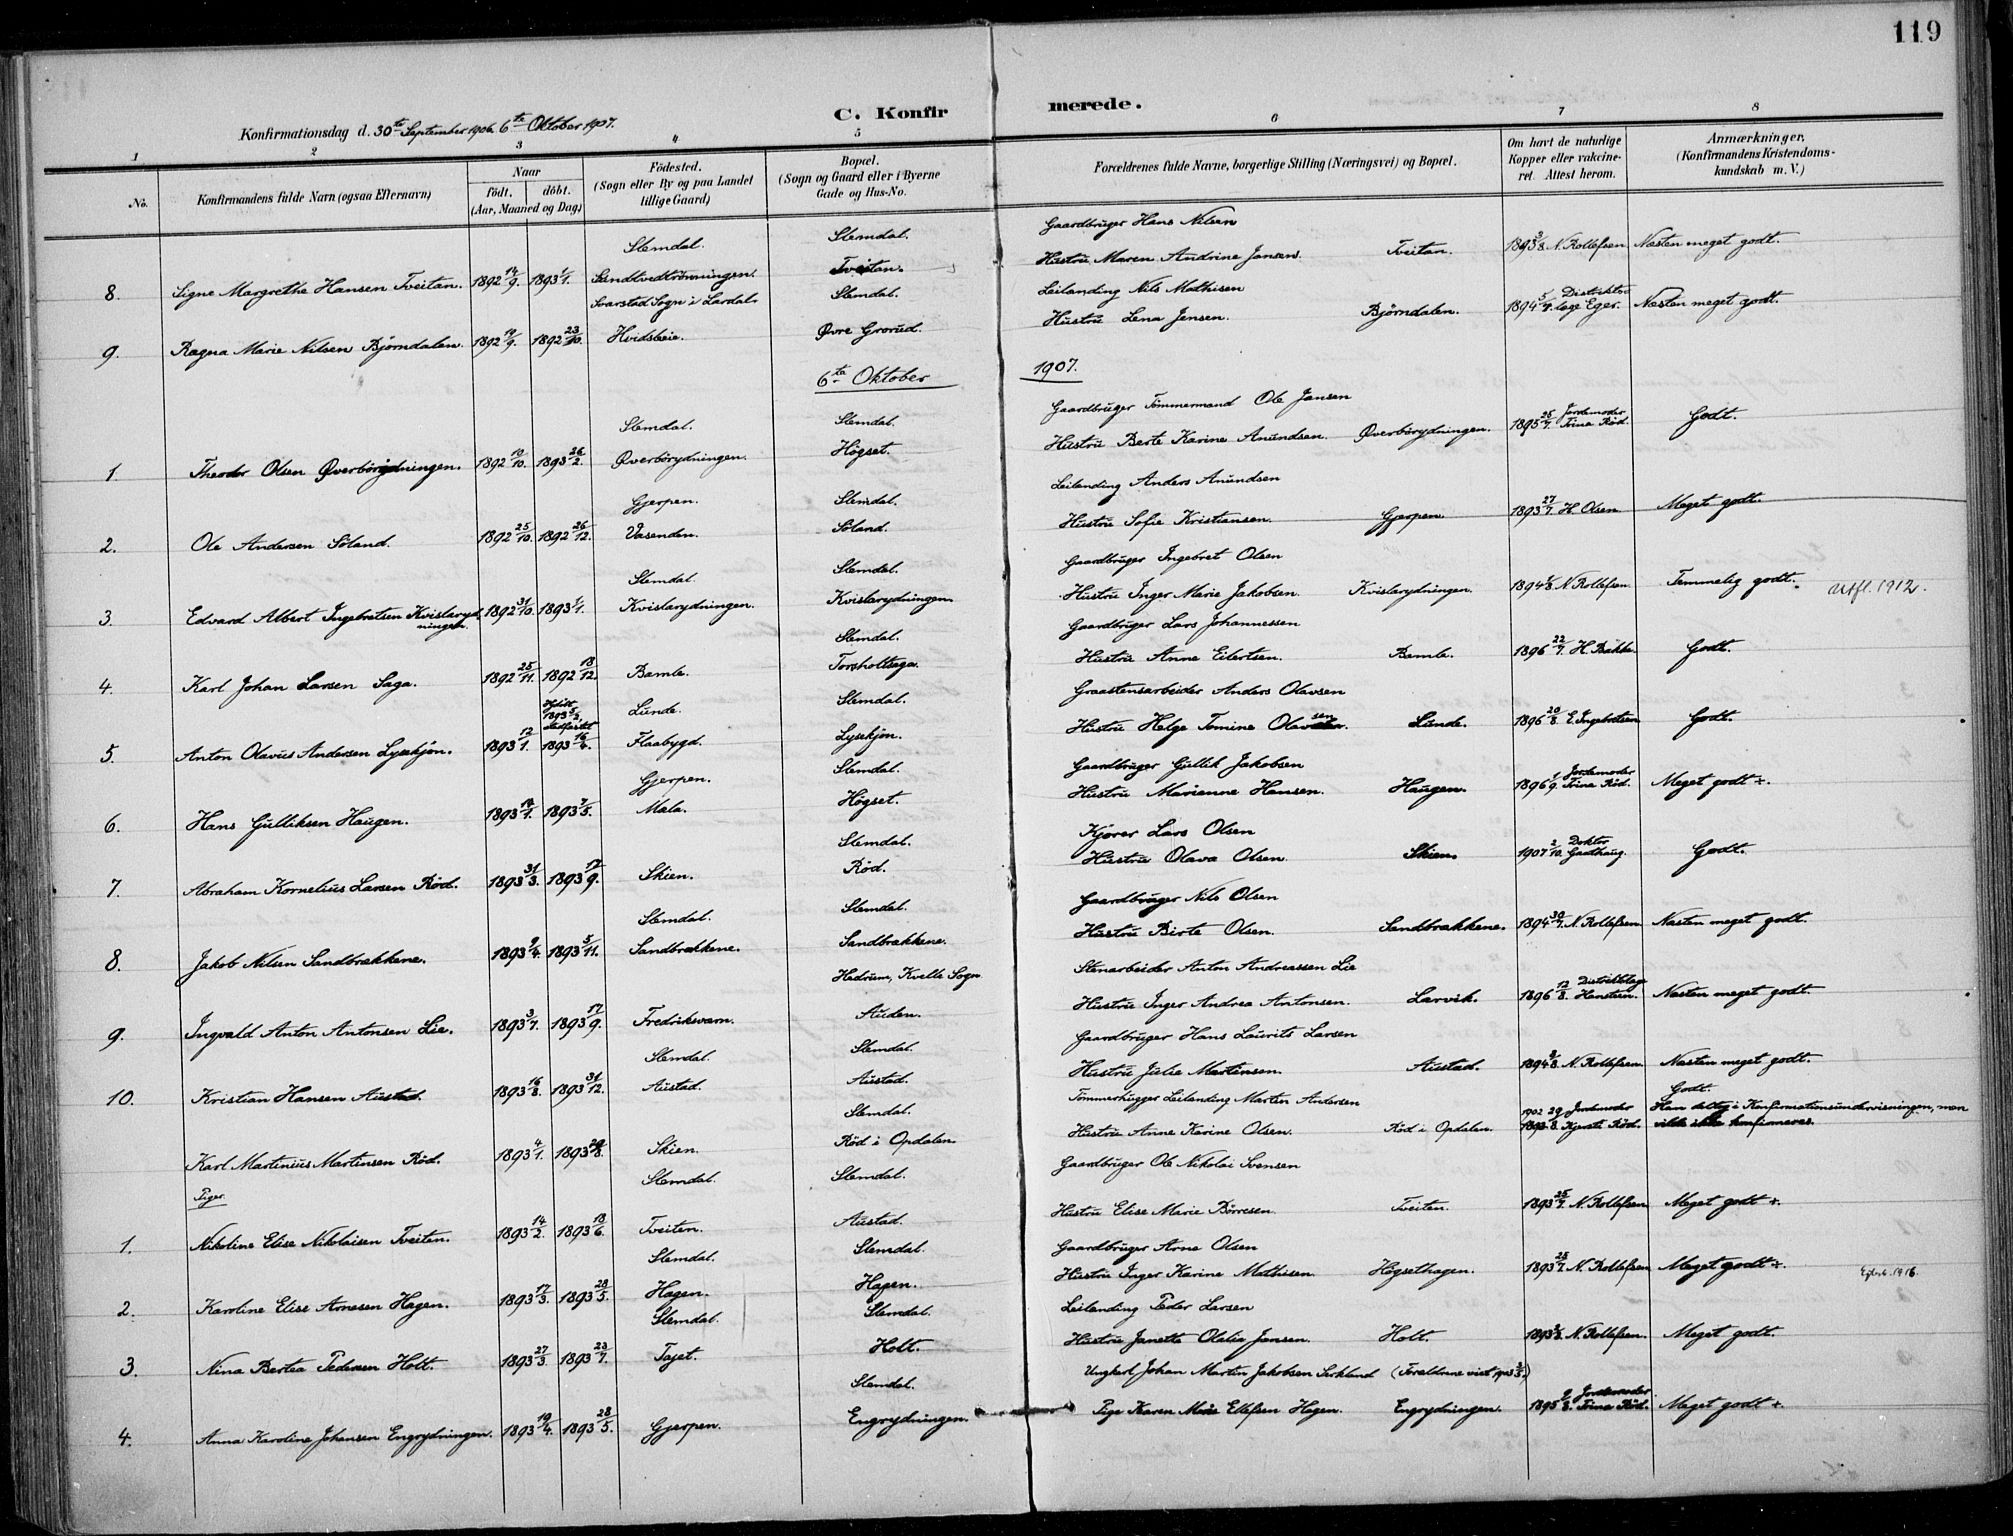 119
C. Konfirmerede.
Konfirmationsdag d. 30te September 1906. 6te Oktober 1907.
1 2 3 4 5 6 7 8
No.
Konfirmandens fulde Navn (ogsaa Efternavn)
Naar
födt. döbt.
(Aar, Maaned og Dag)
Födested.
(Sogn eller By og paa Landet
tillige Gaard)
Bopæl.
(Sogn og Gaard eller i Byerne
Gade og Hus-No.
Forældrenes fulde Navne, borgerlige Stilling (Næringsvei) og Bopæl.
Om havt de naturlige
Kopper eller vakcine-
ret. Attest herom.
Anmærkninger.
(Konfirmandens Kristendoms-
kundskab m. V.)
Slemdal. Slemdal. Gaardbruger Hans Nilsen
8. Signe Margrethe Hansen Tveitan. 1892 14/9. 1893 1/1. Sandtvedtrønningen. Tveitan. Hustru Maren Andrine Jansens. Tveitan. 1893 3/8. N. Rollefsen. Næsten meget godt.
Svarstad Sogn i Lardal. Slemdal. Leilending Nils Mathisen
9. Ragna Marie Nilsen Bjørndalen. 1892 19/9. 1892 23/10. Hvidsteie. Øvre Grorud. Hustru Lena Jensen. Bjørndalen. 1894 5/7. Distriktslæge Eger. Næsten meget godt.
6te Oktober 1907.
Slemdal. Slemdal. Gaardbruger Tömmermand Ole Jansen
1. Theodor Olsen Øverbörydningen. 1892 19/10. 1893 26/2. Øverbörydningen. Högset. Hustru Berte Karine Anundsen. Øverbörydningen. 1895 25/7. Jordemoder Trina Röd. Godt.
Gjerpen. Slemdal. Leilending Anders Anundsen
2. Ole Andersen Söland. 1892 25/10. 1892 26/12. Vasenden. Söland. Hustru Sofie Kristiansen. Gjerpen. 1893 27/7. H. Olsen Meget godt.
Slemdal. Slemdal. Gaardbruger Ingebret Olsen
3. Edvard Albert Ingebretsen Kvislarydningen. 1892 31/10. 1893 1/1. Kvislarydningen. Kvislarydningen. Hustru Inger Marie Jakobsen. Kvislarydningen. 1894 /8. N. Rollefsen Temmelig godt. Utfl. 1912.
Slemdal. Gaardbruger Lars Johannessen
4. Karl Johan Larsen Saga. 1892 25/11. 1892 18/12. Bamle. Torsholtsaga. Hustru Anne Eilertsen. Bamle. 1896 22/7. H. Bakke. Godt.
Hjdöbt 1893 5/2, stadfæstet Lunde. Slemdal. Graastensarbeider Anders Olavsen
5. Anton Olavus Andersen Lysekjön. 1893 12/1. 1893 16/6. Flaabygd. Lysekjön. Hustru Helge Tomine Olavsen. Lunde. 1896 20/8. E. Ingebretsen Godt.
Gjerpen. Slemdal. Gaardbruger Gullik Jakobsen
6. Hans Gulliksen Haugen. 1893 14/1. 1893 7/5. Mæla. Högset. Hustru Marianne Hansen. Haugen. 1896 1/9. Jordemoder Trina Röd. Meget godt +.
Slemdal. Kjörer Lars Olsen
7. Abraham Kornelius Larsen Röd. 1893 31/3. 1893 17/9. Skien. Röd. Hustru Olava Olsen. Skien. 1907 2/10. Doktor Gaathaug. Godt.
Slemdal. Slemdal. Gaardbruger Nils Olsen
8. Jakob Nilsen Sandbrækkene. 1893 9/4. 1893 5/11. Sandbrækkene. Sandbrækkene. Hustru Birte Olsen. Sandbrækkene. 1894 30/7. N. Rollefsen Næsten meget godt.
Hedrum, Kvelle Sogn Stenarbeider Anton Andreassen Lie
9. Ingvald Anton Antonsen Lie. 1893 3/7. 1893 17/9. Fredriksværn. Auden. Hustru Inger Andrea Antonsen. Larvik. 1896 12/8. Distriktslæge Hansteen. Næsten meget godt.
Slemdal. Slemdal. Gaardbruger Hans Laurits Larsen
10. Kristian Hansen Austad. 1893 16/8. 1893 31/12. Austad. Austad. Hustru Julie Martinsen. Austad. 1894 9/8. N. Rollefsen Næsten meget godt.
Slemdal. Tömmerhugger Leilending Martin Andersen Godt.
Karl Martinius Martinsen Röd. 1893 4/1. 1893 20/8. Skien. Röd i Opdalen. Hustru Anne Karine Olsen. Röd i Opdalen. 1902 29/8. Jordemoder Röd. Han deltog i Konfirmationsundervisningen, men vilde ikke konfirmeres.
Piger. Slemdal. Slemdal. Gaardbruger Ole Nikolai Svensen
1. Nikoline Elise Nikolaisen Tveiten. 1893 14/2. 1893 18/6. Tveiten. Austad. Hustru Elise Marie Börresen. Tveiten. 1893 25/7. N. Rollefsen Meget godt +.
Slemdal. Slemdal. Gaardbruger Arne Olsen
2. Karoline Elise Arnesen Hagen. 1893 17/3. 1893 28/5. Hagen. Hagen. Hustru Inger Karine Mathisen. Høgsethagen. 1893 25/7. N. Rollefsen Meget godt +. 1916.
Slemdal. Slemdal. Leilending Peder Larsen
3. Nina Bertea Pedersen Holt. 1893 27/3. 1893 23/7. Tajet. Holt. Hustru Janette Olalia Jensen. Holt. 1893 3/8. N. Rollefsen. Meget godt.
Slemdal. Ungkarl Johan Martin Jakobsen Sirkland (Forældrene viet 1903 3/5.)
4. Anna Karoline Johansen Engrydningen. 1893 19/4. 1893 28/5. Gjerpen. Engrydningen. Pige Karen Marie Ellefsen Hagen. Engrydningen. 1895 9/8. Jordemoder Trina Röd. Meget godt +.